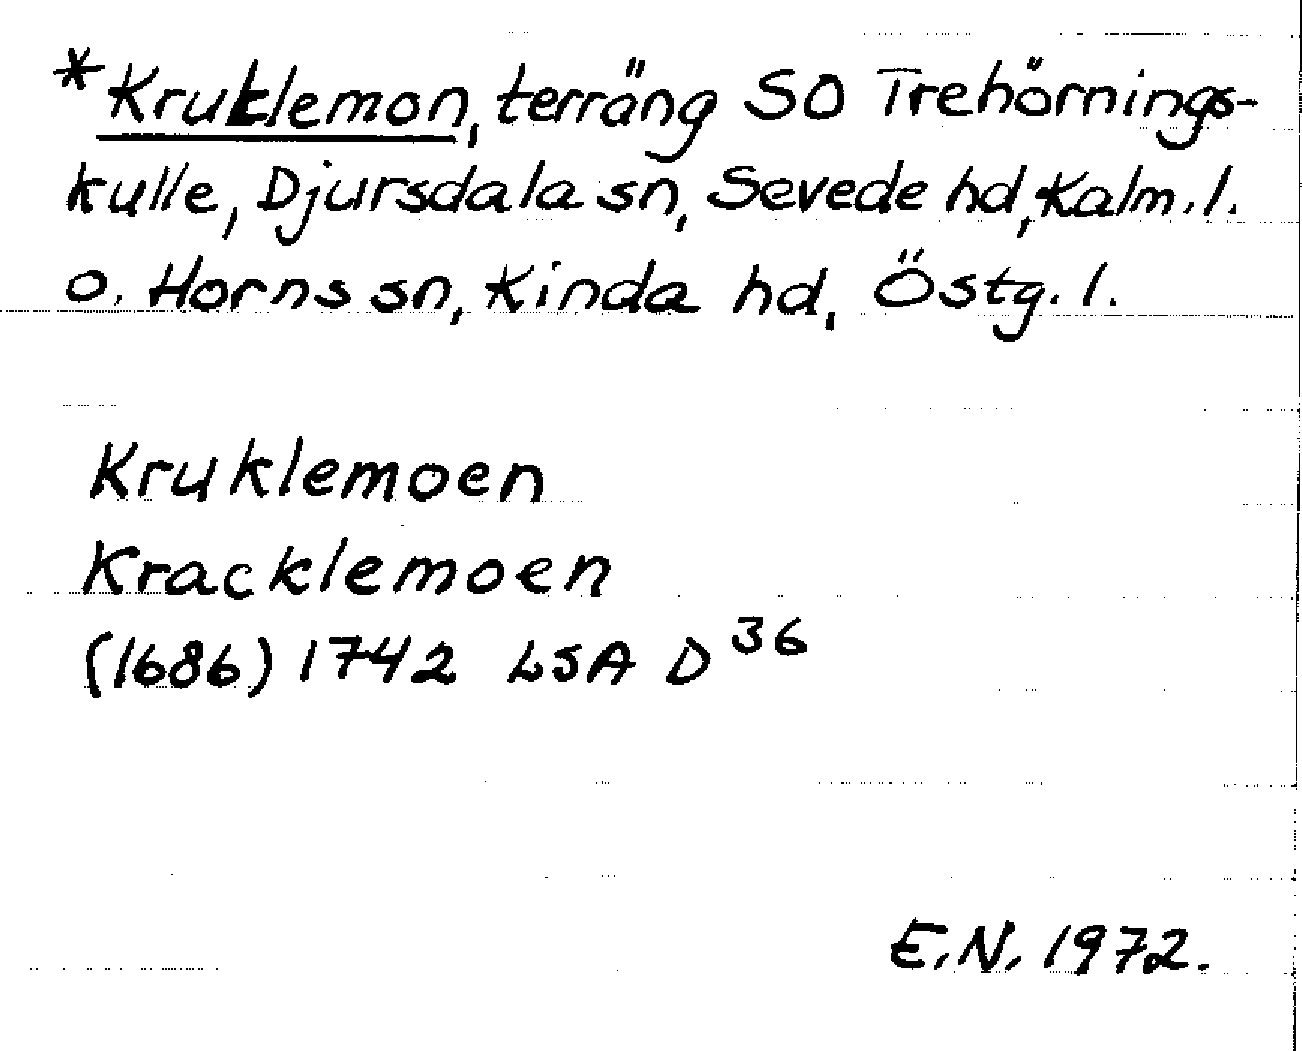 *Kruklemon, terräng SO Trehörnings-
kulle, Djursdala sn, Sevede hd, Kalm.l.
o. Horns sn, Kinda hd, Östg. l.
Kruklemoen
Kracklemoen
(1686) 1742 LSA D 36
E.N. 1972.